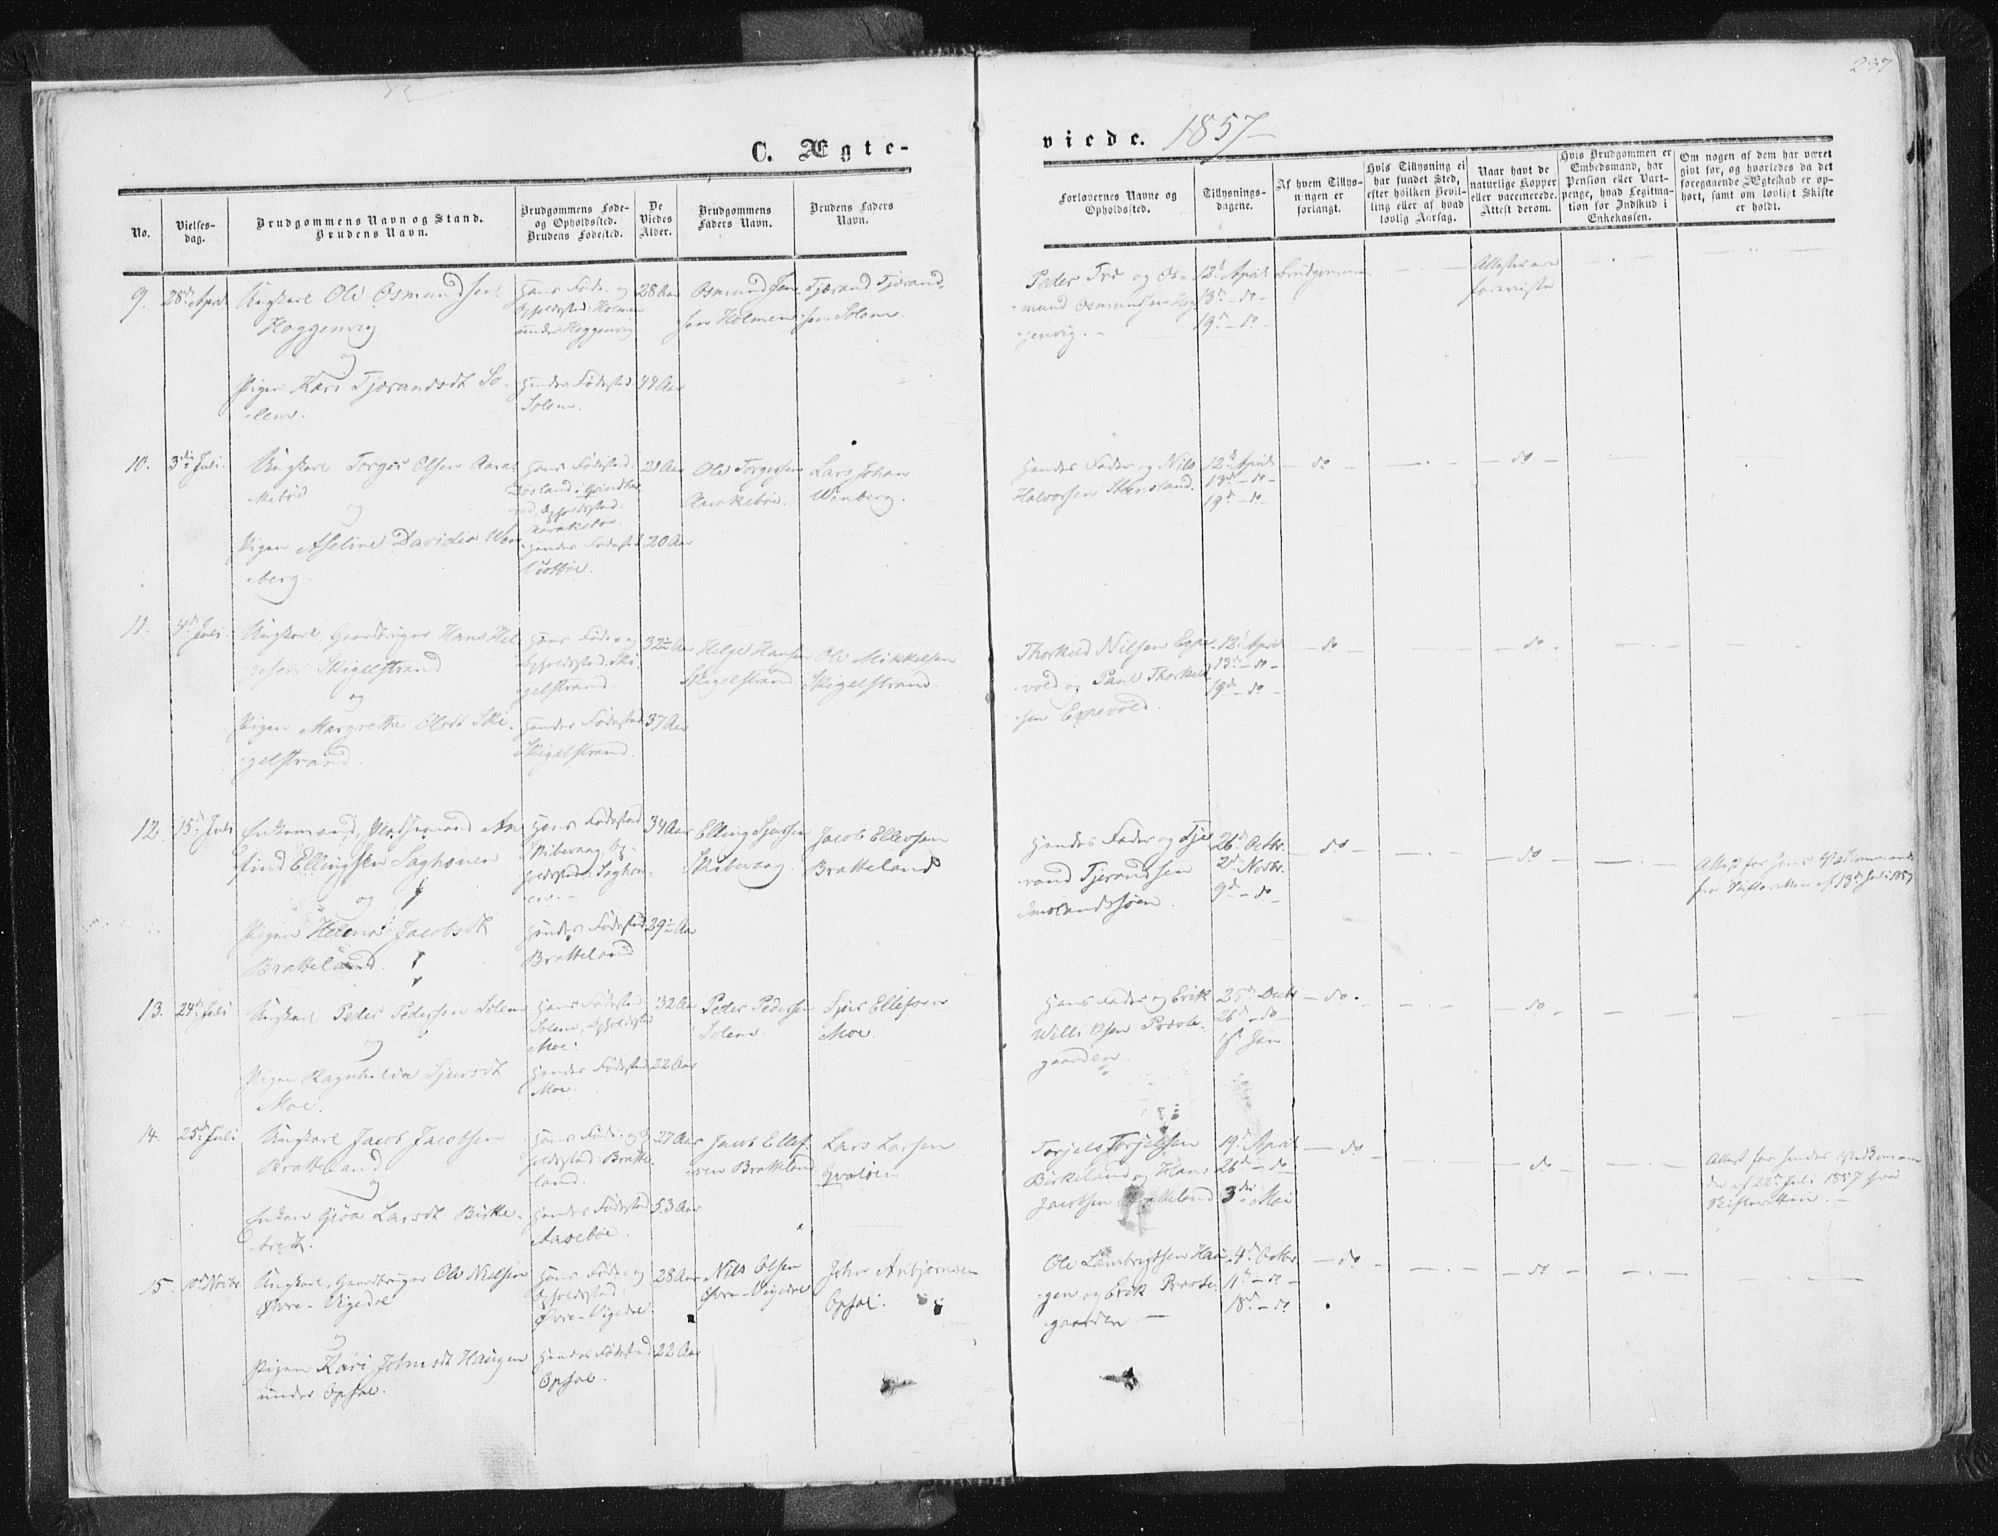 237
C. Ægte-
viede. 1857
No.
Vielses-
dag.
Brudgommens Navn og Stand.
Brudens Navn.
Brudgommens Føde-
og Opholdssted.
Brudens Fødested.
De
Viedes
Alder.
Brudgommens
Faders Navn.
Brudens Faders
Navn.
Forlovernes Navne og
Opholdssted.
Tillysnings-
dagene.
Af hvem Tillys-
ningen er
forlangt.
Hvis Tillysning ei
har fundet Sted,
efter hvilken Bevil-
ling eller af hvad
lovlig Aarsag.
Naar havt de
naturlige Kopper
eller vaccinerede.
Attest derom.
Hvis Brudgommen er
Embedsmand, har
Pension eller Vart-
penge, hvad Legitima-
tion for Indskud i
Enkekassen.
Om nogen af dem har været
gift før, og hvorledes da det
foregaaende Ægteskab er op-
hørt, samt om lovligt Skifte
er holdt.
9. 28d April
Ungkarl Ole Osmundsen
Hoggenvig
og
Pigen Kari Tjærandsdt So-
lem.
Hans Føde- og
Opholdssted: Holmen
under Hoggenvig
Hendes Fødested
Solem.
28 Aar
44 Aar
Osmund Jen-
sen Holmen
Tjærand Tjærand-
sen Solem.
Peder Tvé og Os-
mund Osmundsen Hog-
genvig.
12d April
13d - do -
19d - do -
Brudgommen
Attester ere
foreviste
10. 3die Juli.
Ungkarl Torger Olsen Aara-
kebø
og
Pigen Aseline Davidia Win-
berg.
Hendes Fødested
21 Aar
20 Aar
Ole Torgersen
Aarakebø.
Lars Johan
Winberg.
Hendes Fader og Nils
Halvorsen Steensland.
12d April
13d - do -
19d - do
- do -
- do -
11. 4d Juli.
Ungkarl, Gaardbruger Hans Hel-
gesen Skigelstrand
og
Pigen Margrethe Olsdt Ski-
gelstrand.
Hans Føde- og
Opholdssted: Ski-
gelstrand.
Hendes Fødested
Skigelstrand.
32½ Aar
37 Aar
Helge Hansen
Skigelstrand
Ole Mikkelsen
Skigelstrand.
Thorkild Nilsen Espe-
vold og Paul Thorkild-
sen Espevold.
12d April
13d - do -
19d - do -
- do
- do.
12. 15d Juli
Enkemand,
find Ellingsen Saghouen
og
Pigen Helena Jacobsdt
Bratteland.
Hans Fødested
Skibevaag Op-
holdssted: Saghou-
en.
Hendes Fødested
Bratteland
34 Aar
29½ Aar
Elling Sjursen
Skibevaag.
Jacob Ellevsen
Bratteland
Hendes Fader og Tje-
rand Tjerandsen
26d Octbr.
2d Novbr.
9d - do -
- do -
- do -
13. 24d Juli
Ungkarl Peder Pedersen Solem
og
Pigen Ragnhilda Sjursdt
Moe.
Hans Fødested:
Solem, Opholdssted
Moe.
Hendes Fødested
Moe.
32 Aar
22 Aar
Peder Pedersen
Solem.
Sjur Ellefsen
Moe.
Hans Fader og Erik
Willumsen Præste-
gaarden.
25d Decbr
26d - do -
1st Jan.
- do -
- do
14. 25d Juli
Ungkarl Jacob Jacobsen
Bratteland
og
Enken Gjøa Larsdt Birke-
Hans Føde- og Op-
holdssted: Bratte-
land.
Hendes Fødested
Aasebøe.
27 Aar
53 Aar
Jacob Ellef-
sen Bratteland
Lars Larsen
Qvaløen
Torjels Torjelsen
Birkeland og Hans
Jacobsen Bratteland
19d April
26d - do
3die Mai
- do
- do -
15. 10d Novbr.
Ungkarl, Gaardbruger Ole Nielsen
Øvre-Vigedal
og
Pigen Kari Johnsdt Haugen
under Opsal.
Hans Føde- og
Opholdssted:
Øvre-Vigedal
Hendes Fødested
Opsal.
28 Aar
22 Aar
Nils Olsen
Øvre-Vigedal
John Anbjørnsen
Opsal.
Ole Lambrigtsen Hau-
gen og Erik Præste-
gaarden
4d Octbr.
11d - do -
18d - do
- do -
- do -